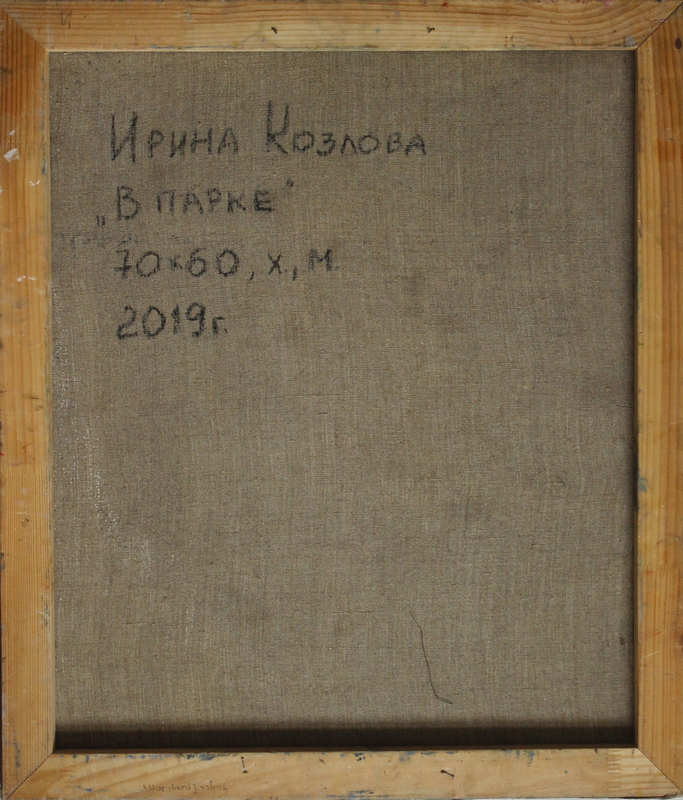 Ирина Козлова
„В парке"
70×60, х., м.
2019г.